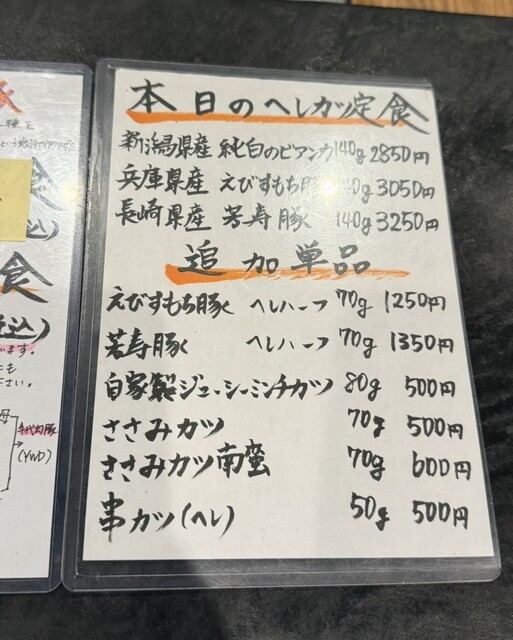 本日のヘレカツ定食
新潟県産 純白のビアンカ 140g 2850円
兵庫県産 えびすもち豚 0g 3050円
長崎県産 芳寿豚 140g 3250円
追加単品
えびすもち豚 ヘレハーフ 70g 1250円
芳寿豚 ヘレハーフ 70g 1350円
自家製ジューシーミンチカツ 80g 500円
ささみカツ 70g 500円
ささみカツ南蛮 70g 600円
串カツ(ヘレ) 50g 500円
食
込)
食
込)
います。
さい。
母
千代幻豚
(YWD)